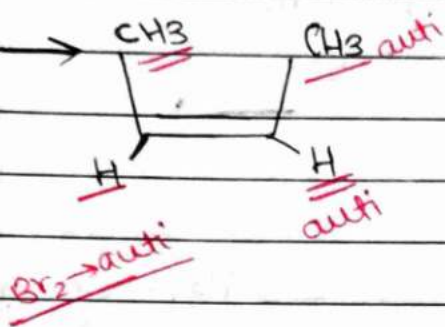 → CH3 CH3 auti
H H
auti
Br2→auti